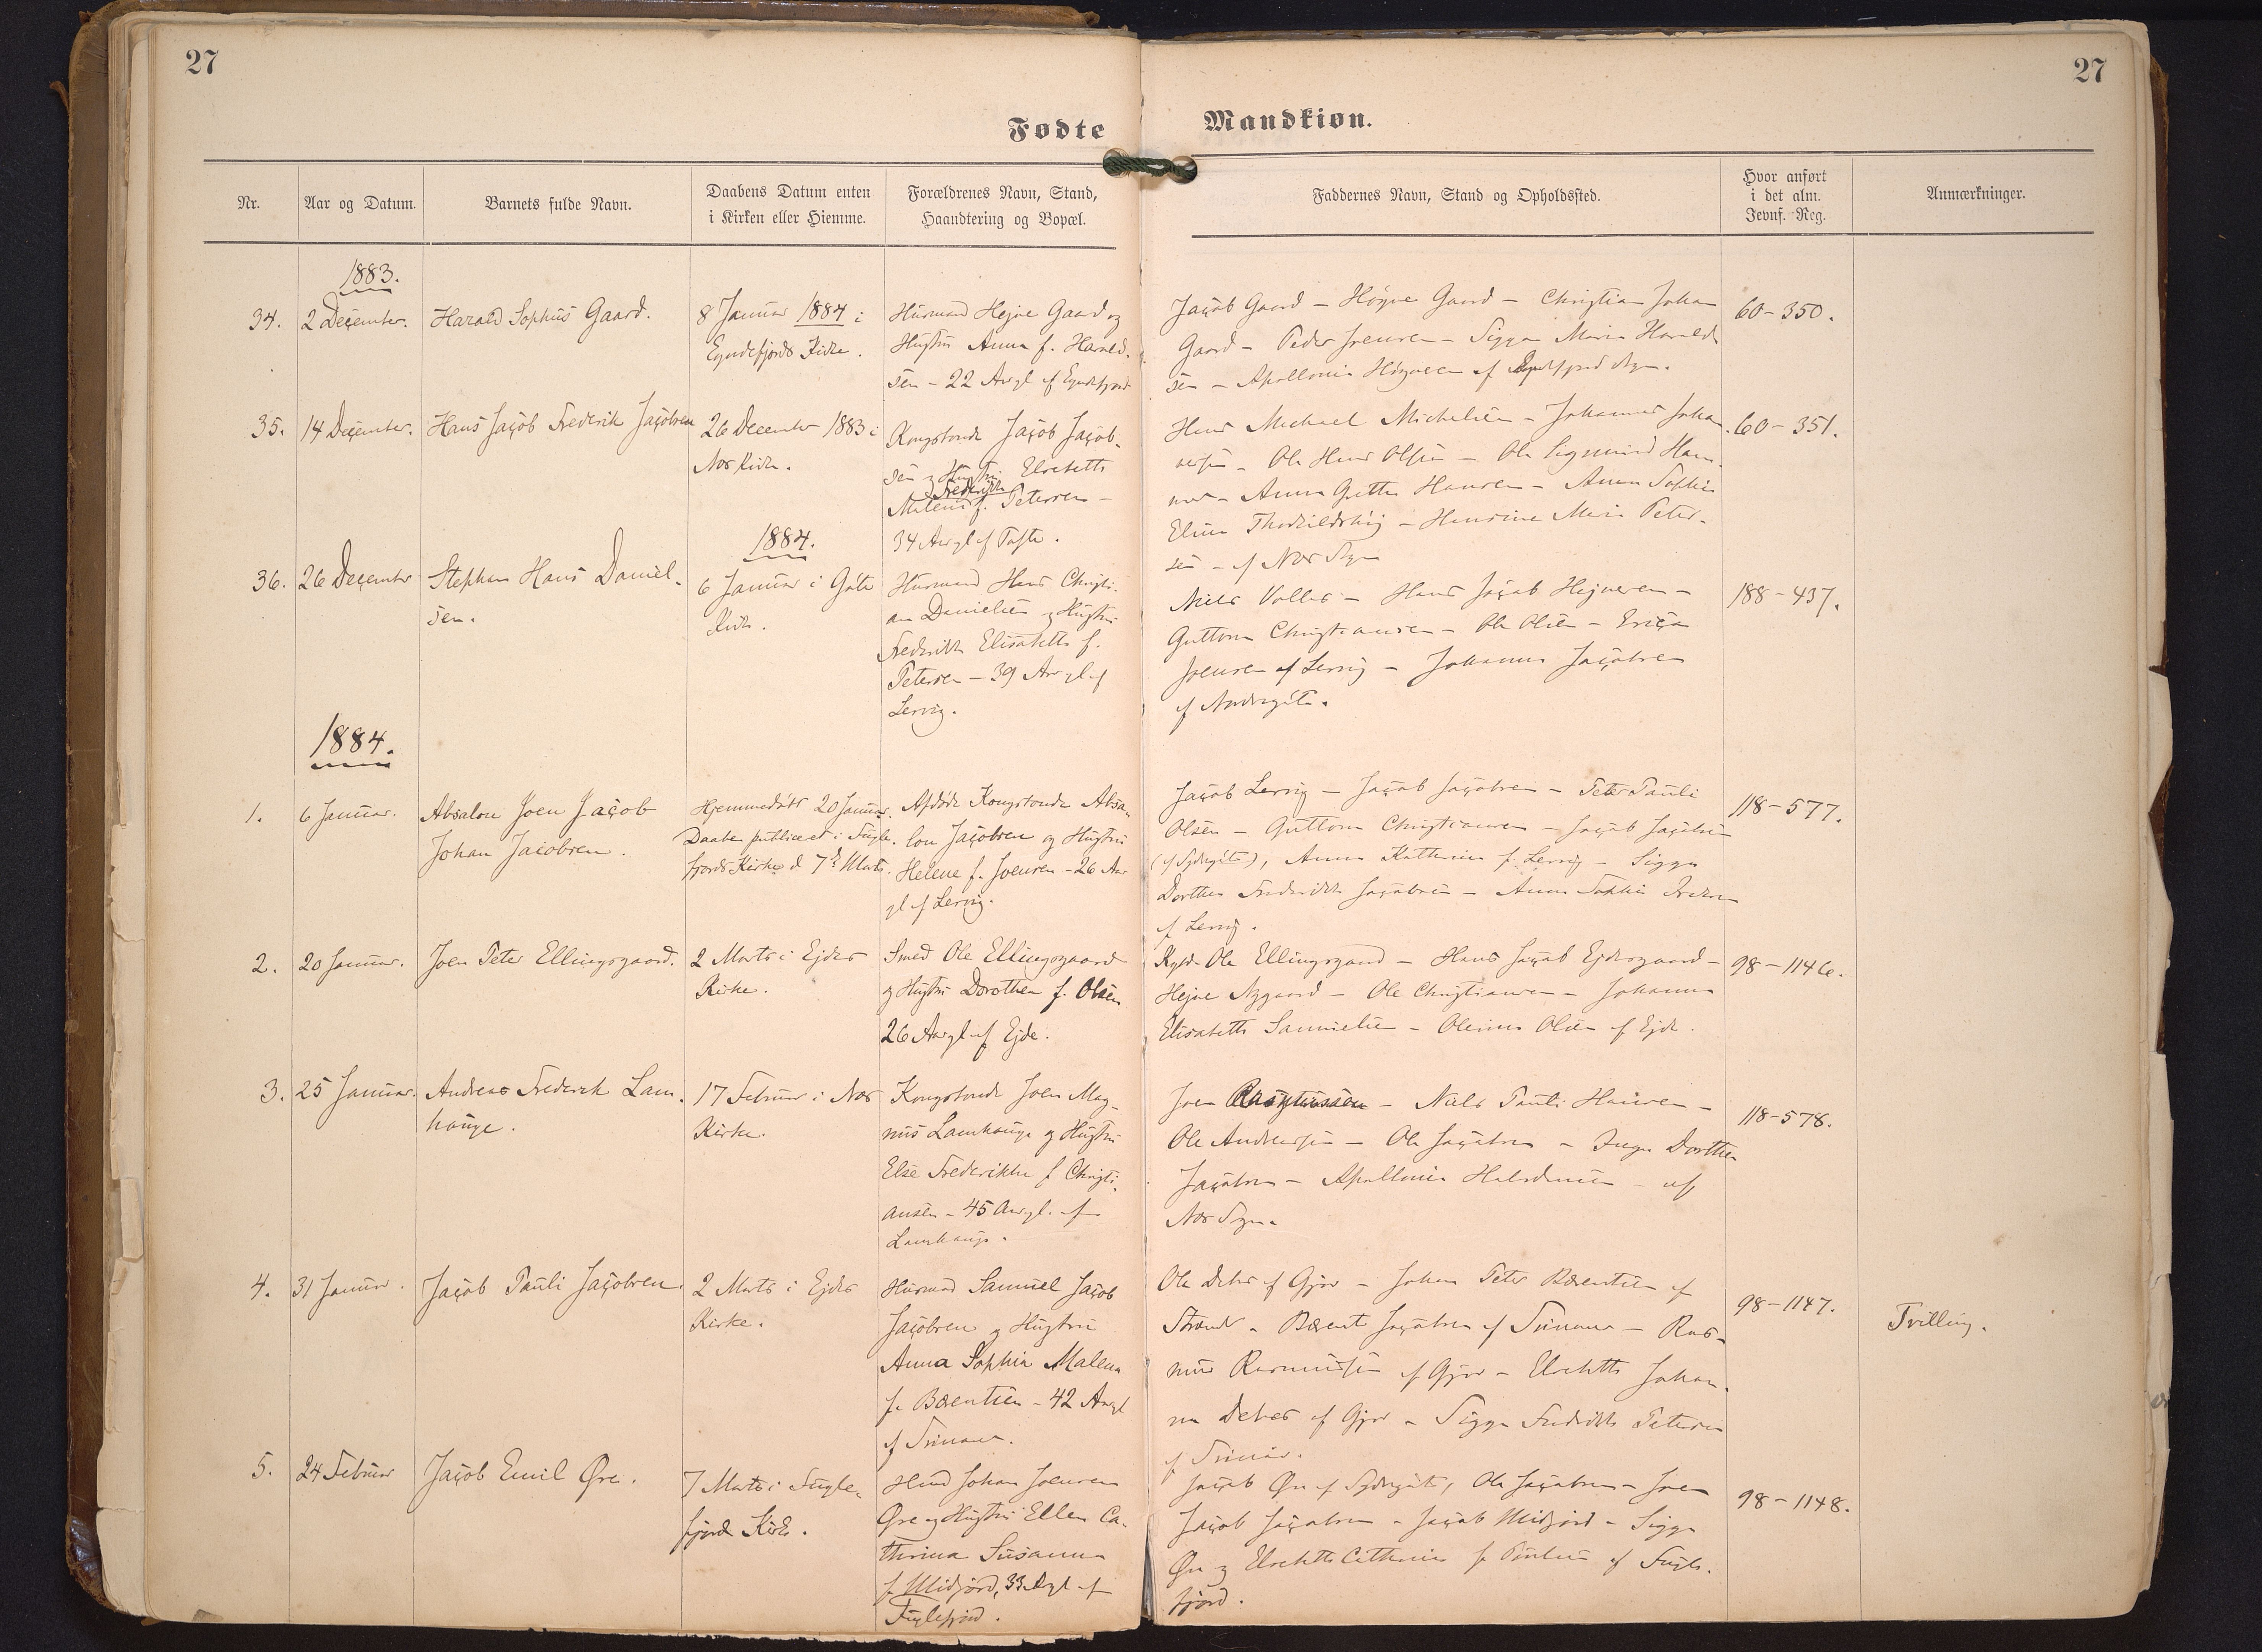 27
27
Fødte
Mandkiøn.
Nr.
Aar og Datum.
Barnets fulde Navn.
Daabens Datum enten
i Kirken eller Hiemme.
Forældrenes Navn, Stand,
Haandtering og Bopæl.
Faddernes Navn, Stand og Opholdssted.
Hvor anført
i det alm.
Jevnf. Reg.
Anmærkninger.
1883.
34.
2 December.
Harald Sophus Gaard.
8 Januar 1884 i
Eyndefjords Kirke.
Husmand Hejne Gaard og
Hustru Anna f. Harald-
sen - 22 Aar gl af Eyndefjord
Jacob Gaard - Høgne Gaard - Christian Johan
Gaard - Peder Joensen - Sigga Maria Harald
sen - Apollonia Høgnesen af
60-350.
35.
14 December.
Hans Jacob Frederik Jacobsen
26 December 1883 i
Næs Kirke.
Kongsbonde Jacob Jacob-
sen og Hustru Elsebeth
Frederikke
Malene f. Petersen -
34 Aar gl af Tofte.
Hans Michael Michelsen - Johannes Johan
nesen - Ole Hans Olsen - Ole Sigmund Ham
mer - Anna Grethe Hansen - Anna Sophie
Elina - Hansine Marie Peter-
sen - af Næs Sogn
60-351.
36.
26 December
Stephan Hans Daniel-
sen.
1884.
6 Januar i Gøte
Kirke.
Husmand Hans Christi-
an Danielsen og Hustru
Frederikke Elisabeth f.
Petersen - 39 Aar gl af
Lervig.
Niels - Hans Jacob Hejnesen -
Guttorm Christiansen - Ole Olsen - Erica
Joensen af Lervig - Johanna Jacobsen
af Nordregøte.
188-437.
1884.
1.
6 Januar.
Absalon Joen Jacob
Johan Jacobsen.
Hjemmedøbt 20 Januar.
Daaben publiceret i Fugle-
fjords Kirke d 7de Marts.
Afdøde Kongsbonde Absa-
lon Jacobsen og Hustru
Helene f. Joensen - 26 Aar
gl af Lervig.
Jacob Lervig - Jacob Jacobsen - Peter Pauli
Olsen - Guttorm Christiansen - Jacob Jacobsen
(af Sydregøte), Anna Katherina f. Lervig - Sigga
Dorthea Frederikke Jacobsen - Anna Sophie
af Lervig.
118-577.
2.
20 Januar.
Joen Peter Ellingsgaard.
2 Marts i Ejdes
Kirke.
Smed Ole Ellingsgaard
og Hustru Dorothea f. Olsen
26 Aar gl af Ejde.
Ole Ellingsgaard - Hans Jacob Ejdesgaard -
Hejne Nygaard - Ole Christiansen - Johanna
Elisabeth Samuelsen - Olevina Olsen af Ejde.
98-1146.
3.
25 Januar.
Andreas Frederik Lam-
hauge.
17 Februar i Næs
Kirke.
Kongsbonde Joen Mag-
nus Lamhauge og Hustru
Else Frederikke f Christi-
ansen - 45 Aar gl. af
Lamhauge.
Joen Rasmussen - Niels Pauli Hansen -
Ole Andreasen - Ole Jacobsen - Inger Dorthea
Jacobsen - Apollonia - af
Næs Sogn
118-578.
4.
31 Januar.
Jacob Pauli Jacobsen.
2 Marts i Ejdes
Kirke.
Husmand Samuel Jacob
Jacobsen og Hustru
Anna Sophia Malena
f. Bærentsen - 42 Aar gl
af
Ole Debes af Gjov - Johan Peter Bærentsen af
- Bærent Jacobsen af - Ras-
mus Rasmussen af Gjov - Elsebeth Johan-
na Debes af Gjov - Sigga Frederikke Petersen
af
98-1147.
Tvilling.
5.
24 Februar
Jacob Emil Øre.
7 Marts i Fugle-
fjord Kirke.
Johan Joensen
Øre og Hustru Ellen Ca-
thrina Susanna
f. Midjord, 33 Aar gl af
Fuglefjord.
Jacob Øre af Sydregøte, Ole Jacobsen - Joen
Jacob Jacobsen - Jacob Midjord - Sigga
Øre og Elsebeth Cathrina f. Poulsen af Fugle-
fjord.
98-1148.